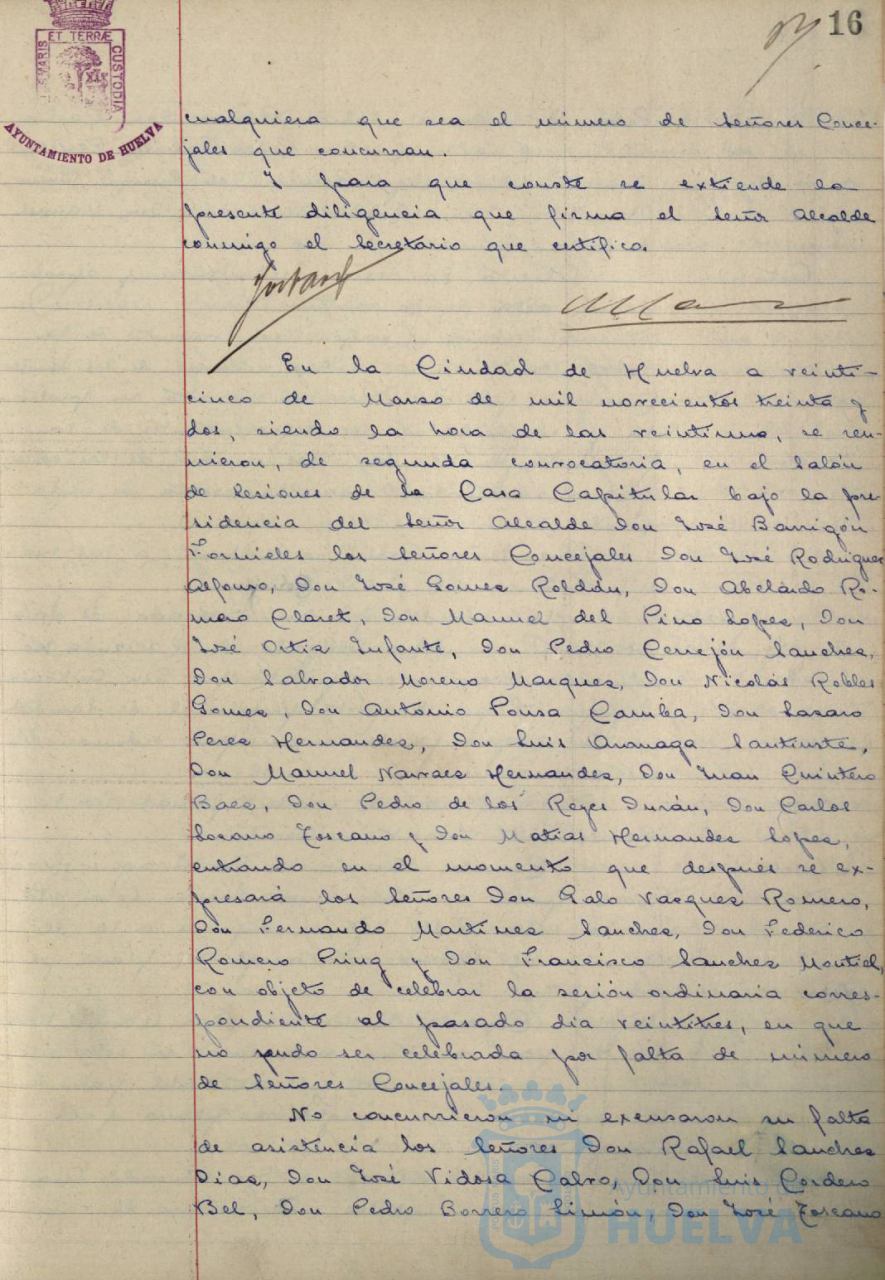 16
ET TERRÆ
CUSTODIA
AYUNTAMIENTO DE HUELVA
cualquiera que sea el número de Señores Conce-
jales que concurran.
Y para que conste se extiende la
presente diligencia que firma el Señor Alcalde
conmigo el Secretario que certifico.
En la Ciudad de Huelva a veinti-
cinco de Marzo de mil novecientos treinta y
dos, siendo la hora de las veintiuna, se reu-
nieron, de segunda convocatoria, en el Salón
de Sesiones de la Casa Capitular bajo la pre-
sidencia del Señor Alcalde Don José Barrigón
Fornieles los Señores Concejales Don José Rodriguez
Alfonso, Don José Gomez Roldán, Don Abelardo Ro-
mero Claret, Don Manuel del Pino Lopez, Don
José Ortiz Infante, Don Pedro Cerrejón Sanchez,
Don Salvador Moreno Marquez, Don Nicolás Robles
Gomez, Don Antonio Pousa Camba, Don Lazaro
Perez Hernandez, Don Luis
Don Manuel Narvaez Hernandez, Don Juan Quintero
Baez, Don Pedro de los Reyes Durán, Don Carlos
Lozano Toscano y Don Matías Hernandez Lopez,
entrando en el momento que después se ex-
presará los Señores Don Galo Vazquez Romero,
Don Fernando Martinez Sanchez, Don Federico
Romero y Don Francisco Sanchez Montiel,
con objeto de celebrar la sesión ordinaria corres-
pondiente al pasado día veintitres, en que
no pudo ser celebrada por falta de número
de Señores Concejales.
No concurrieron ni excusaron su falta
de asistencia los Señores Don Rafael Sanchez
Diaz, Don José Vidosa Calvo, Don Luis Cordero
Bel, Don Pedro Borrero Limón, Don José Toscano
Ayuntamiento de
HUELVA